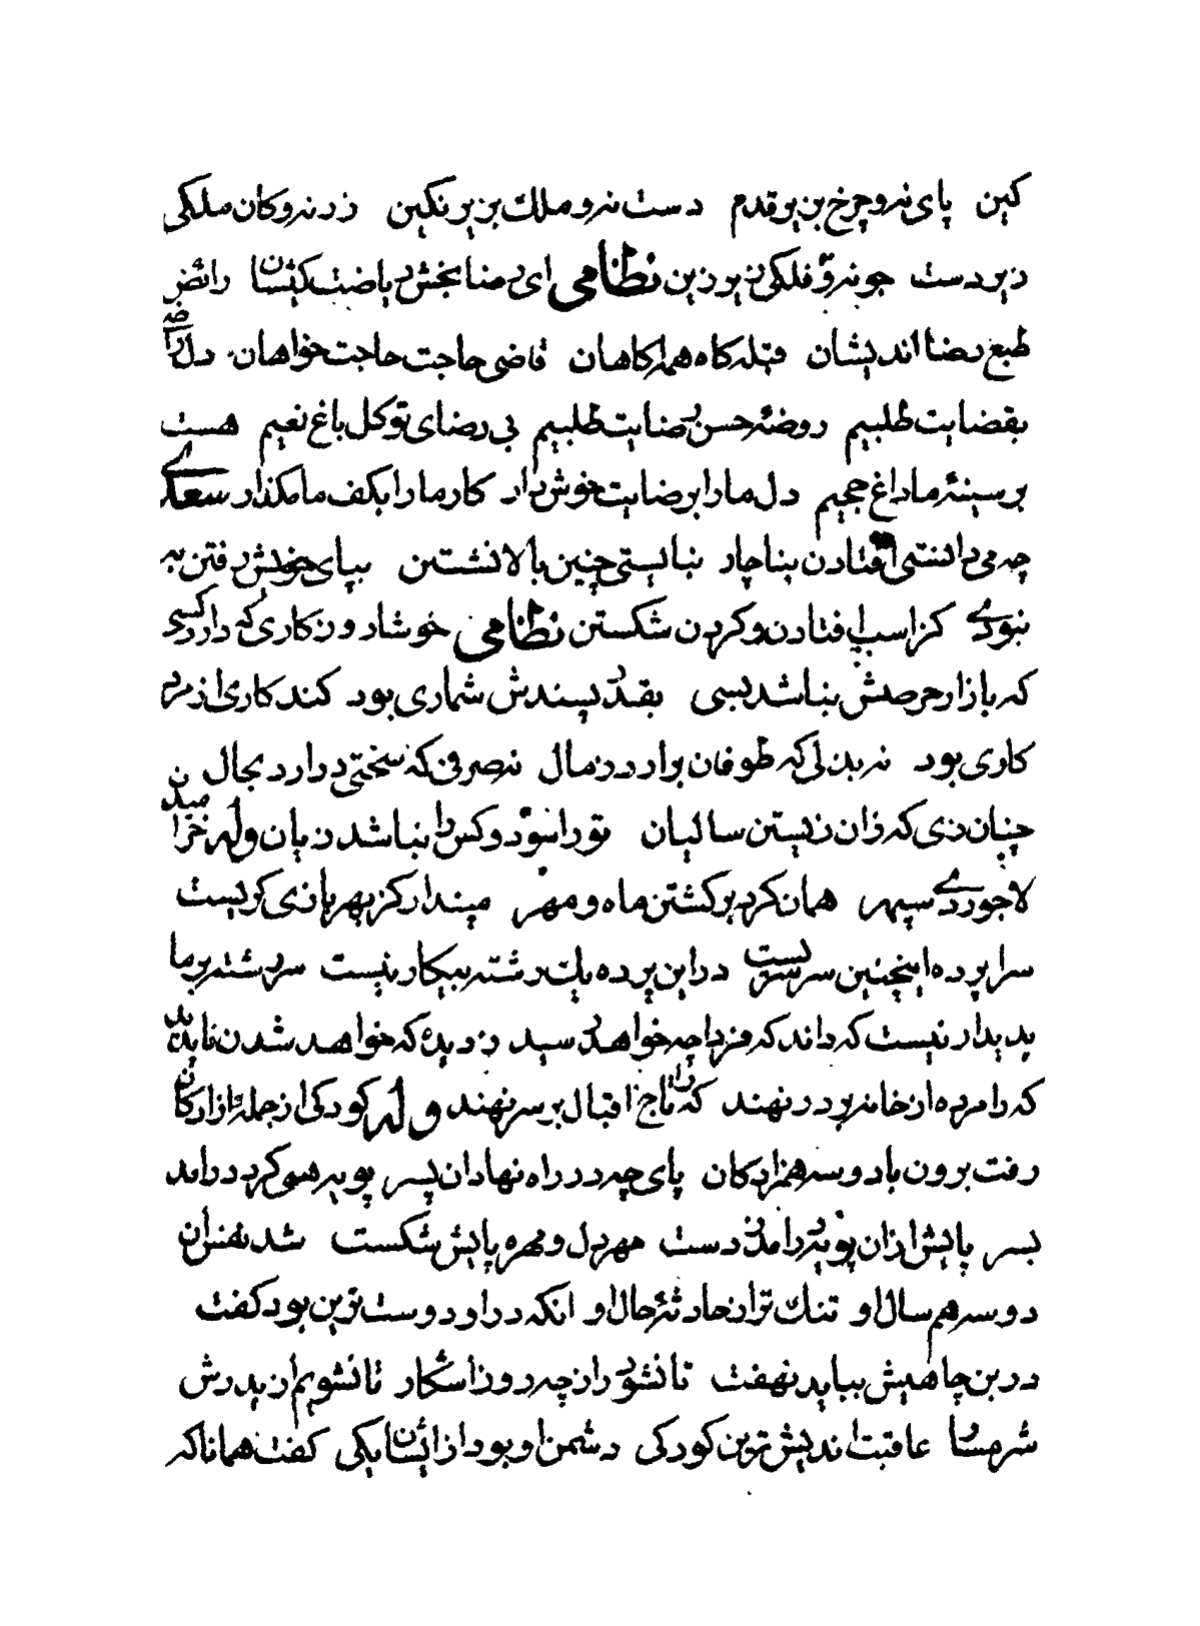 کین پای نه و چرخ بزیر قدم دست نه و ملك بزیر نکین زر نه و کان ملکی
زیر دست جو نه و فلکی زیر زین نظامی ای رضا بخش ریاضت کیشان رائض
طبع رضا اندیشان قبله کاه همه اکاهان قاضی حاجت حاجت خواهان دل راضی
بقضایت طلبیم روضهٔ حسن رضایت طلبیم بی رضای تو کل باغ نعیم هست
بر سینهٔ ما داغ جحیم دل ما را برضایت خوش دار کار ما را بکف ما مکذار سعدی
چه می دانستی افتادن بناچار نبایستی چنین بالا نشستن بپای خویش رفتن به
نبودی کز اسب افتادن و کردن شکستن نظامی خوشا روزکاری که دارد کسی
که بازار حرصش نباشد بسی بقدر پسندش شماری بود کند کاری ار مرد
کاری بود نه بذلی که طوفان برارد ز مال نه صرفی که سختی درارد بحال
چنان زی که زان زیستن سالیان تو را سود و کس را نباشد زیان وله خرامیدن
لاجوردی سپهر همان کرد بر کشتن ماه و مهر مپندار کز بهر بازی کریست
سراپرده اینچنین سرسریست در این پرده یك رشته بیکار نیست سر رشته بر ما
پدیدار نیست که داند که فردا چه خواهد رسید ز دیده که خواهد شدن ناپدید
که را مرده از خانه بر در نهند که را تاج اقبال بر سر نهند وله کودکی از جمله ازادکان
رفت برون با دو سه همزادکان پای چه در راه نهاد ان پسر پویه همی کرد درامد
بسر پایش ازان پویه درامد ز دست مهر دل و مهره پایش شکست شد نفس ان
دو سه هم سال او تنك تر از حادثهٔ حال او انکه در او دوست ترین بود کفت
در بن چاهیش بباید نهفت تا نشود راز چه روز اشکار تا نشویم از پدرش
شرمسار عاقبت اندیش ترین کودکی دشمن او بود ازایشان یکی کفت همانا که